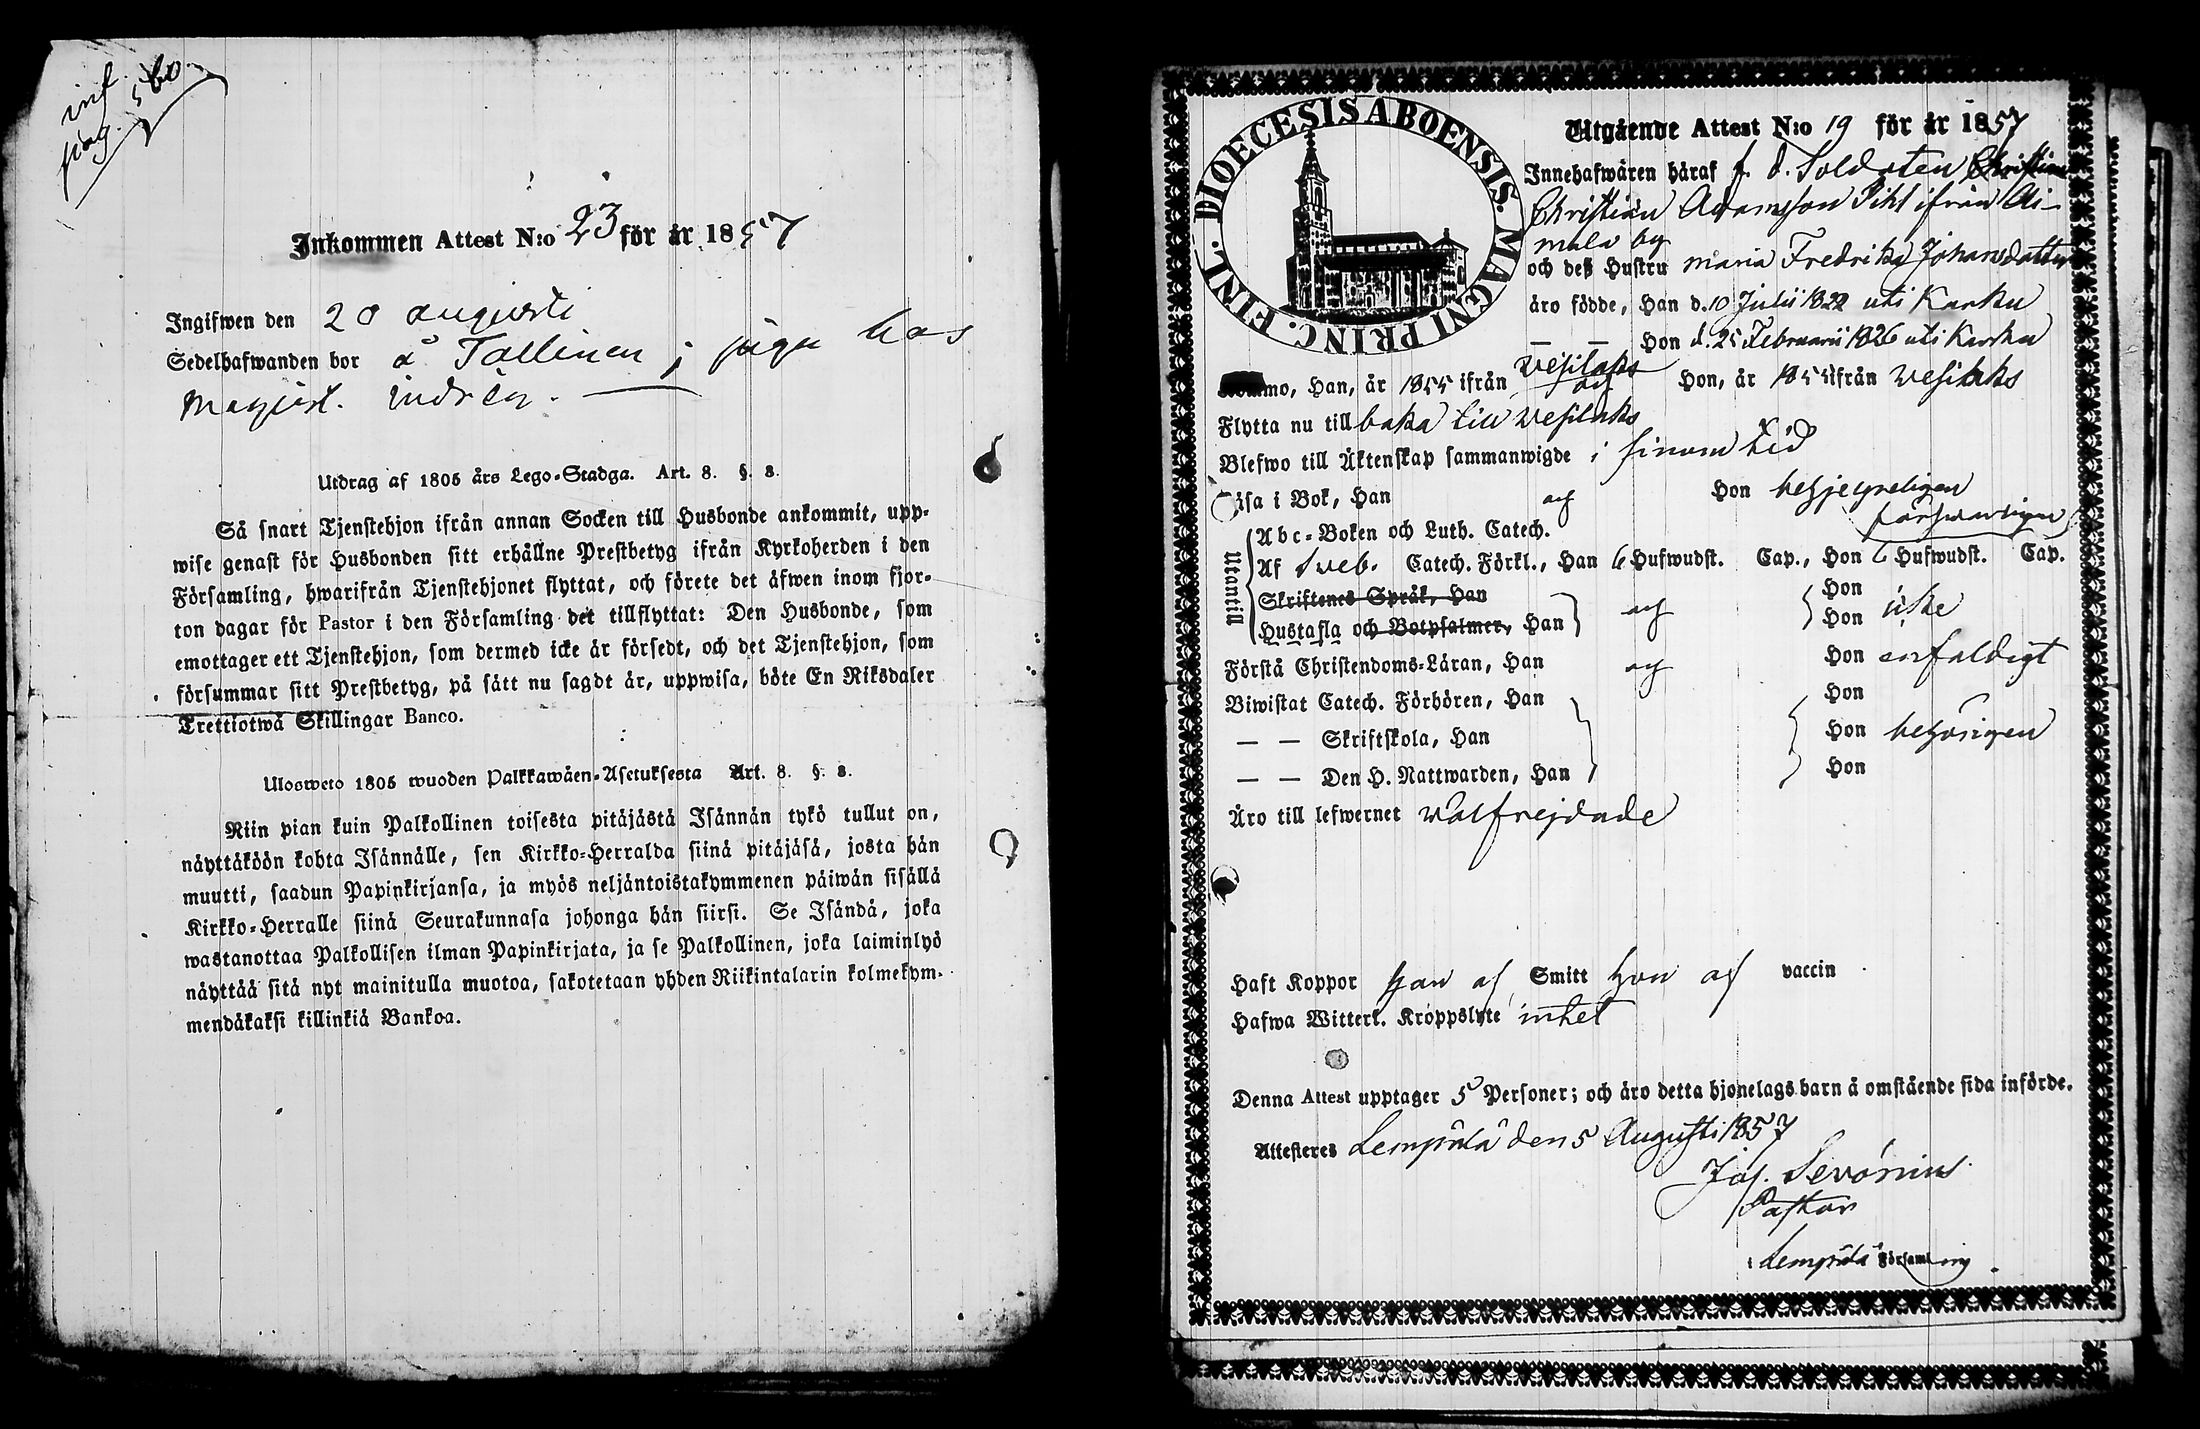 inf.
pag. 560.
Inkommen Attest N:o 23 för år 1857
Ingifwen den 20 augusti
Sedelhafwanden bor å Tallinen; piga hos
Magist. Indrén.
Utdrag af 1805 års Lego-Stadga. Art. 8. §. 3.
Så snart Tjenstehjon ifrån annan Socken till Husbonde ankommit, upp-
wise genast för Husbonden sitt erhållne Prestbetyg ifrån Kyrkoherden i den
Församling, hwarifrån Tjenstehjonet flyttat, och förete det äfwen inom fjor-
ton dagar för Pastor i den Församling det tillflyttat: Den Husbonde, som
emottager ett Tjenstehjon, som dermed icke är försedt, och det Tjenstehjon, som
försummar sitt Prestbetyg, på sätt nu sagdt är, uppwisa, böte En Riksdaler
Trettiotwå Skillingar Banco.
Ulosweto 1805 wuoden Palkkawäen-Asetuksesta Art. 8. §. 3.
Niin pian kuin Palkollinen toisesta pitäjästä Isännän tykö tullut on,
näyttäköön kohta Isännälle, sen Kirkko-Herralda siinä pitäjäsä, josta hän
muutti, saadun Papinkirjansa, ja myös neljäntoistakymmenen päiwän sisällä
Kirkko-Herralle siinä Seurakunnasa johonga hän siirsi. Se Isändä, joka
wastanottaa Palkollisen ilman Papinkirjata, ja se Palkollinen, joka laiminlyö
näyttää sitä nyt mainitulla muotoa, sakotetaan yhden Riikintalarin kolmekym-
mendäkaksi killinkiä Bankoa.
DIOECESIS ABOENSIS. MAGNI PRINC. FINL.
Utgående Attest N:o 19 för år 1857
Innehafwären häraf f. d. Soldaten Christian
Christian Adamsson Pihl ifrån Ai-
mala by
och deß Hustru Maria Fredrika Johansdotter
äro födde, Han d. 10 Julii 1822 uti Karku
— — Hon d. 25 Februarii 1826 uti Karku
Kommo, Han, år 1855 ifrån Vesilaks Hon, år 1855 ifrån Vesilaks
Flytta nu till baka till Vesilaks
Blefwo till Äktenskap sammanwigde i sinom tid
Läsa i Bok, Han och Hon begripeligen
försvarligen
Utantill
Abc-Boken och Luth. Catech.
Af Sveb. Catech. Förkl., Han 6 Hufwudst. Cap., Hon 6 Hufwudst. Cap.
Skriftenes Språk, Han Hon
Hustafla och Botpsalmer, Han och Hon icke
Förstå Christendoms-Läran, Han och Hon enfaldigt
Biwistat Catech. Förhören, Han Hon
— — Skriftskola, Han Hon behörigen
— — Den H. Nattwarden, Han Hon
Äro till lefwernet Välfrejdade
Haft Koppor Han af Smitt Hon af vaccin
Hafwa Witterl. Kroppslyte intet
Denna Attest upptager 5 Personer; och äro detta hjonelags barn å omstående sida införde.
Attesteres Lempälä den 5 Augusti 1857
Jos. Sevónius
Pastor
i Lempälä Församling